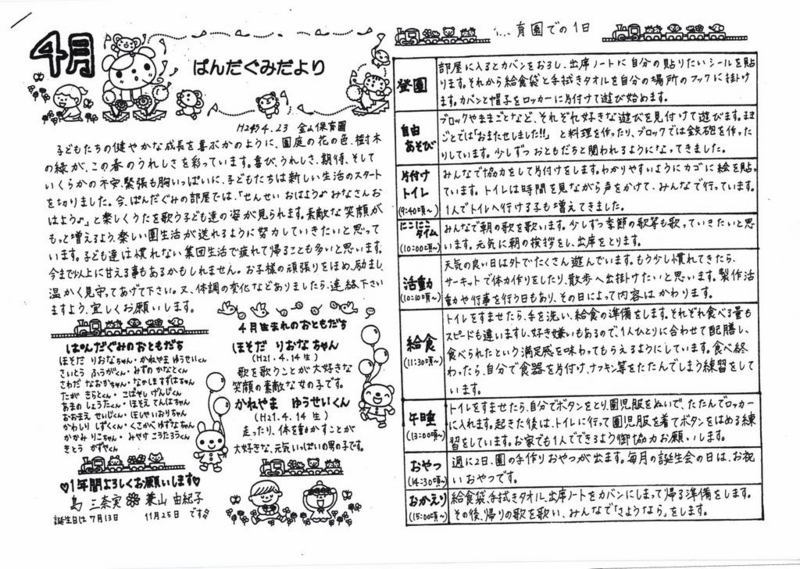 4月
ぱんだぐみだより
H25.4.23 金山保育園
子どもたちの健やかな成長を喜ぶかのように、園庭の花の色、樹木
の緑が、この春のうれしさを彩っています。喜び、うれしさ、期待、そして
いくらかの不安、緊張も胸いっぱいに、子どもたちは新しい生活のスタート
を切りました。今、ぱんだぐみの部屋では、"せんせいおはよう♪みなさんお
はよう♪"と楽しくうたを歌う子ども達の姿が見られます。素敵な笑顔が
もっと増えるよう、楽しい園生活が送れるように努力していきたいと思って
います。子ども達は慣れない集団生活で疲れて帰ることも多いと思います。
今まで以上に甘える事もあるかもしれません。お子様の頑張りをほめ、励まし、
温かく見守ってあげて下さい。又、体調の変化などありましたら、連絡下さい
ますよう、宜しくお願いします。
ぱんだぐみのおともだち
ほそだ りおなちゃん・かねやま ゆうせいくん
さいとう ふうがくん・みずの かなとくん
さわだ なおかちゃん・なかしま すずはちゃん
たが きらとくん・こばやし げんじくん
あまの しょうたくん・ほそえ てんはちゃん
おおまえ せいじくん・ほしや いおりちゃん
かわしり しずくくん・くこがく ゆずなちゃん
かがみ りこちゃん・みやけ こうたろうくん
きとう かずやくん
♡1年間よろしくお願いします♡
島 三奈実 兼山 由紀子
誕生日は7月13日 11月25日 です♪
4月生まれのおともだち
ほそだ りおな ちゃん
(H21.4.14 生)
歌を歌うことが大好きな
笑顔の素敵な女の子です。
かねやま ゆうせいくん
(H21.4.14 生)
走ったり、体を動かすことが
大好きな、元気いっぱいの男の子です。
育園での1日
登園
部屋に入るとカバンをおろし、出席ノートに自分の貼りたいシールを貼
ります。それから給食袋と手拭きタオルを自分の場所のフックに掛け
ます。カバンと帽子をロッカーに片付けて遊び始めます。
自由あそび
ブロックやままごとなど、それぞれ好きな遊びを見付けて遊びます。まま
ごとでは"おまたせしました!!"と料理を作ったり、ブロックでは鉄砲を作った
りしています。少しずつおともだちと関われるようになってきました。
片付けトイレ
(9:40頃~)
みんなで協力をして片付けをします。わかりやすいようにカゴに絵を貼っ
ています。トイレは時間を見ながら声をかけて、みんなで行っています。
1人でトイレへ行ける子も増えてきました。
にこにこタイム
(10:00頃~)
みんなで朝の歌を歌います。少しずつ季節の歌等も歌っていきたいと思
います。元気に朝の挨拶をし、出席をとります。
活動
(10:10頃~)
天気の良い日は外でたくさん遊んでいます。もう少し慣れてきたら、
サーキットで体力作りをしたり、散歩へ出掛けたいと思います。製作活
動や行事を行う日もあり、その日によって内容はかわります。
給食
(11:30頃~)
トイレをすませたら、手を洗い、給食の準備をします。それぞれ食べる量も
スピードも違いますし、好き嫌いもあるので、1人ひとりに合わせて配膳し、
食べられたという満足感を味わってもらえるようにしています。食べ終
わったら、自分で食器を片付け、ナフキン等をたたんでしまう練習をして
います。
午睡
(13:00頃~)
トイレをすませたら、自分でボタンをとり、園児服をぬいで、たたんでロッカー
に入れます。起きた後は、トイレに行って園児服を着てボタンをはめる練
習をしています。お家でも1人でできるよう御協力お願いします。
おやつ
(14:30頃~)
週に2日、園の手作りおやつが出ます。毎月の誕生会の日は、お祝
いおやつです。
おかえり
(15:00頃~)
給食袋、手拭きタオル、出席ノートをカバンにしまって帰る準備をします。
その後、帰りの歌を歌い、みんなで"さようなら"をします。